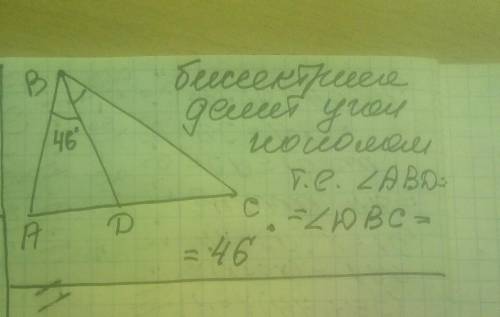 B
46°
A
D
C
биссектриса
делит угол
пополам
т.е. ∠ABD=
=∠DBC=
=46